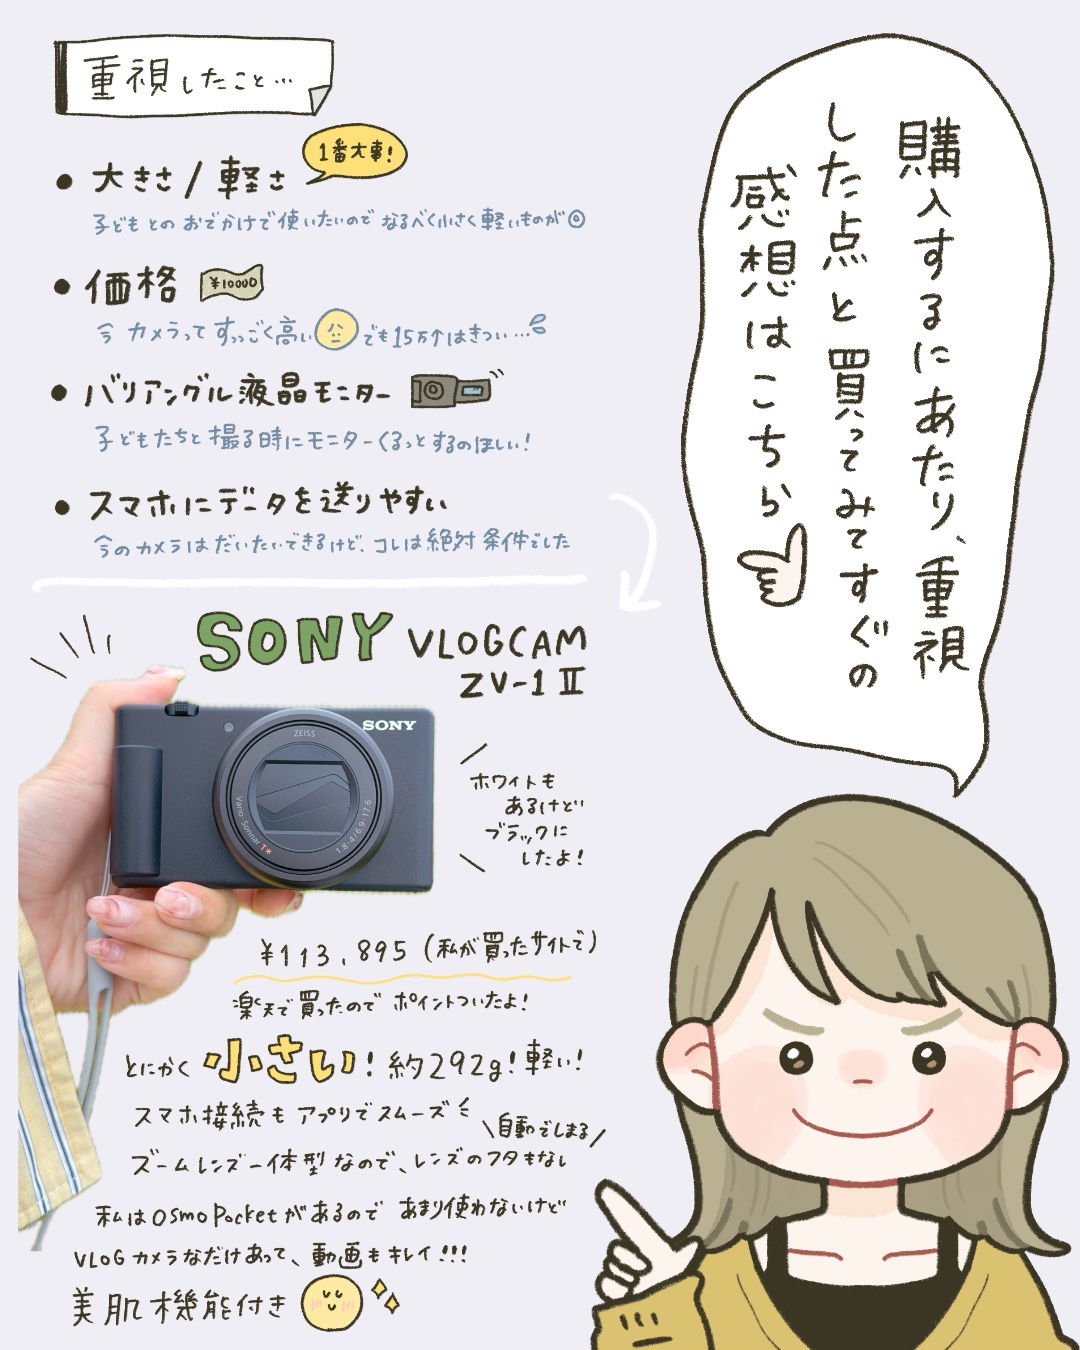 購入するにあたり、重視
した点と買ってみてすぐの
感想はこちら
重視したこと…
・大きさ/軽さ
1番大事!
子どもとのおでかけで使いたいのでなるべく小さく軽いものが◎
・価格
¥10000
今カメラってすっごく高い でも15万↑はきつい…
・バリアングル液晶モニター
子どもたちと撮る時にモニターくるっとするのほしい!
・スマホにデータを送りやすい
今のカメラはだいたいできるけど、コレは絶対条件でした
SONY VLOGCAM
ZV-1Ⅱ
SONY
ZEISS
Vario-Sonnar T*
1.8-4/6.9-17.6
ホワイトも
あるけど
ブラックに
したよ!
¥113,895(私が買ったサイトで)
楽天で買ったのでポイントついたよ!
とにかく小さい!約292g!軽い!
スマホ接続もアプリでスムーズ
自動でしまる
ズームレンズ一体型なので、レンズのフタもなし
私はOsmo Pocketがあるのであまり使わないけど
VLOGカメラなだけあって、動画もキレイ!!!
美肌機能付き